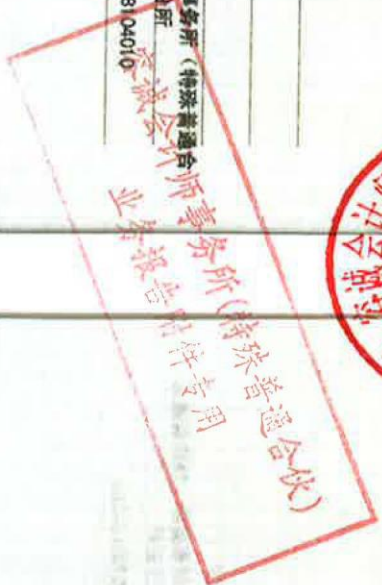 事务所（特殊普通合
所
8104010
容诚会计师事务所(特殊普通合伙)
业务报告附件专用
容诚会计师